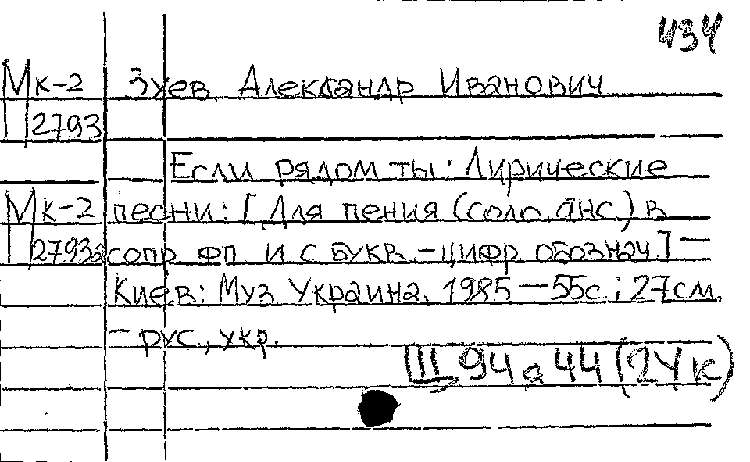 434
Мк-2 Зуев Александр Иванович
2793
Если рядом ты: Лирические
Мк-2 песни: [Для пения (соло, анс.) в
2793а сопр. фп и с букв.-цифр. обознач.] —
Киев: Муз Украина, 1985 — 55с.; 27см.
— рус., укр.
Ш 94 а 44 (24к)